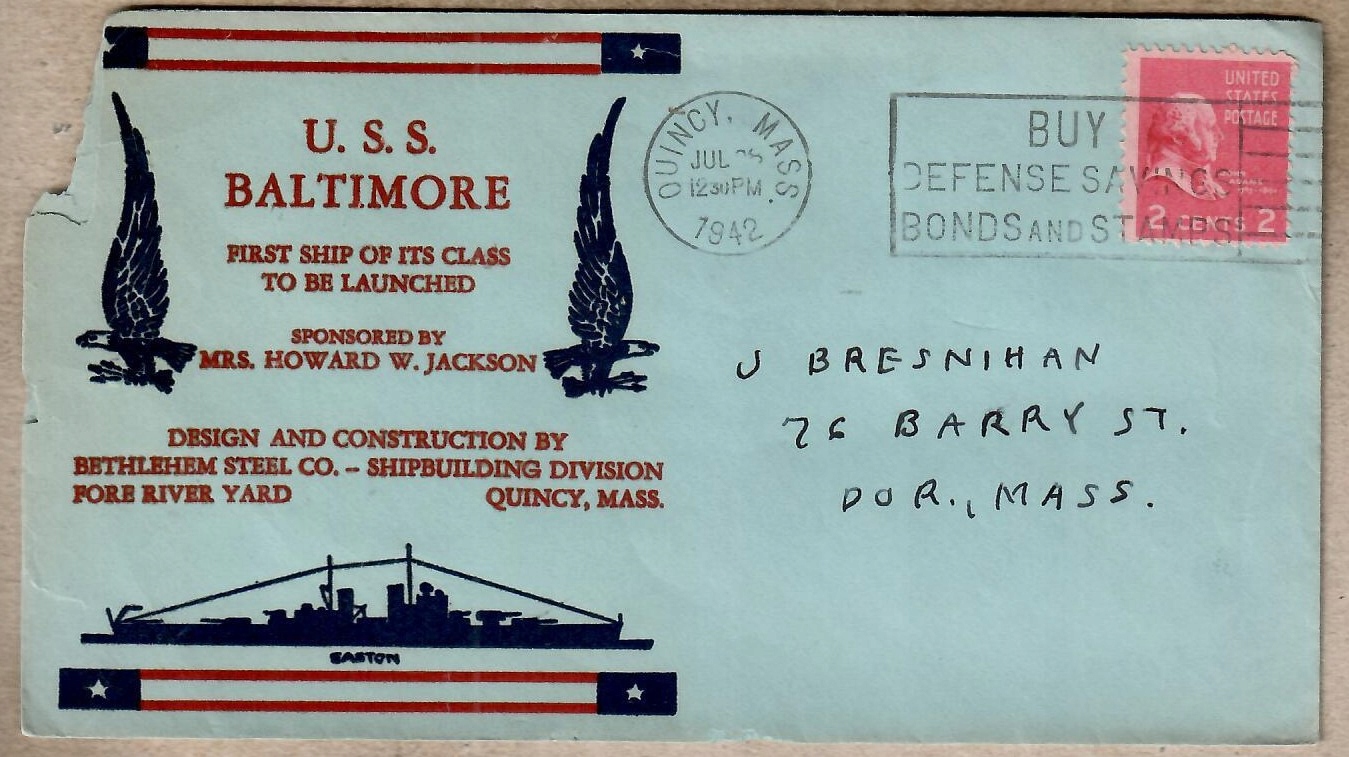 U. S. S.
BALTIMORE
FIRST SHIP OF ITS CLASS
TO BE LAUNCHED
SPONSORED BY
MRS. HOWARD W. JACKSON
DESIGN AND CONSTRUCTION BY
BETHLEHEM STEEL CO. – SHIPBUILDING DIVISION
FORE RIVER YARD QUINCY, MASS.
EASTON
QUINCY, MASS.
JUL
12 30 PM
1942
BUY
DEFENSE SAVINGS
BONDS AND STAMPS
UNITED
STATES
POSTAGE
2 CENTS 2
J BRESNIHAN
76 BARRY ST.
DOR., MASS.